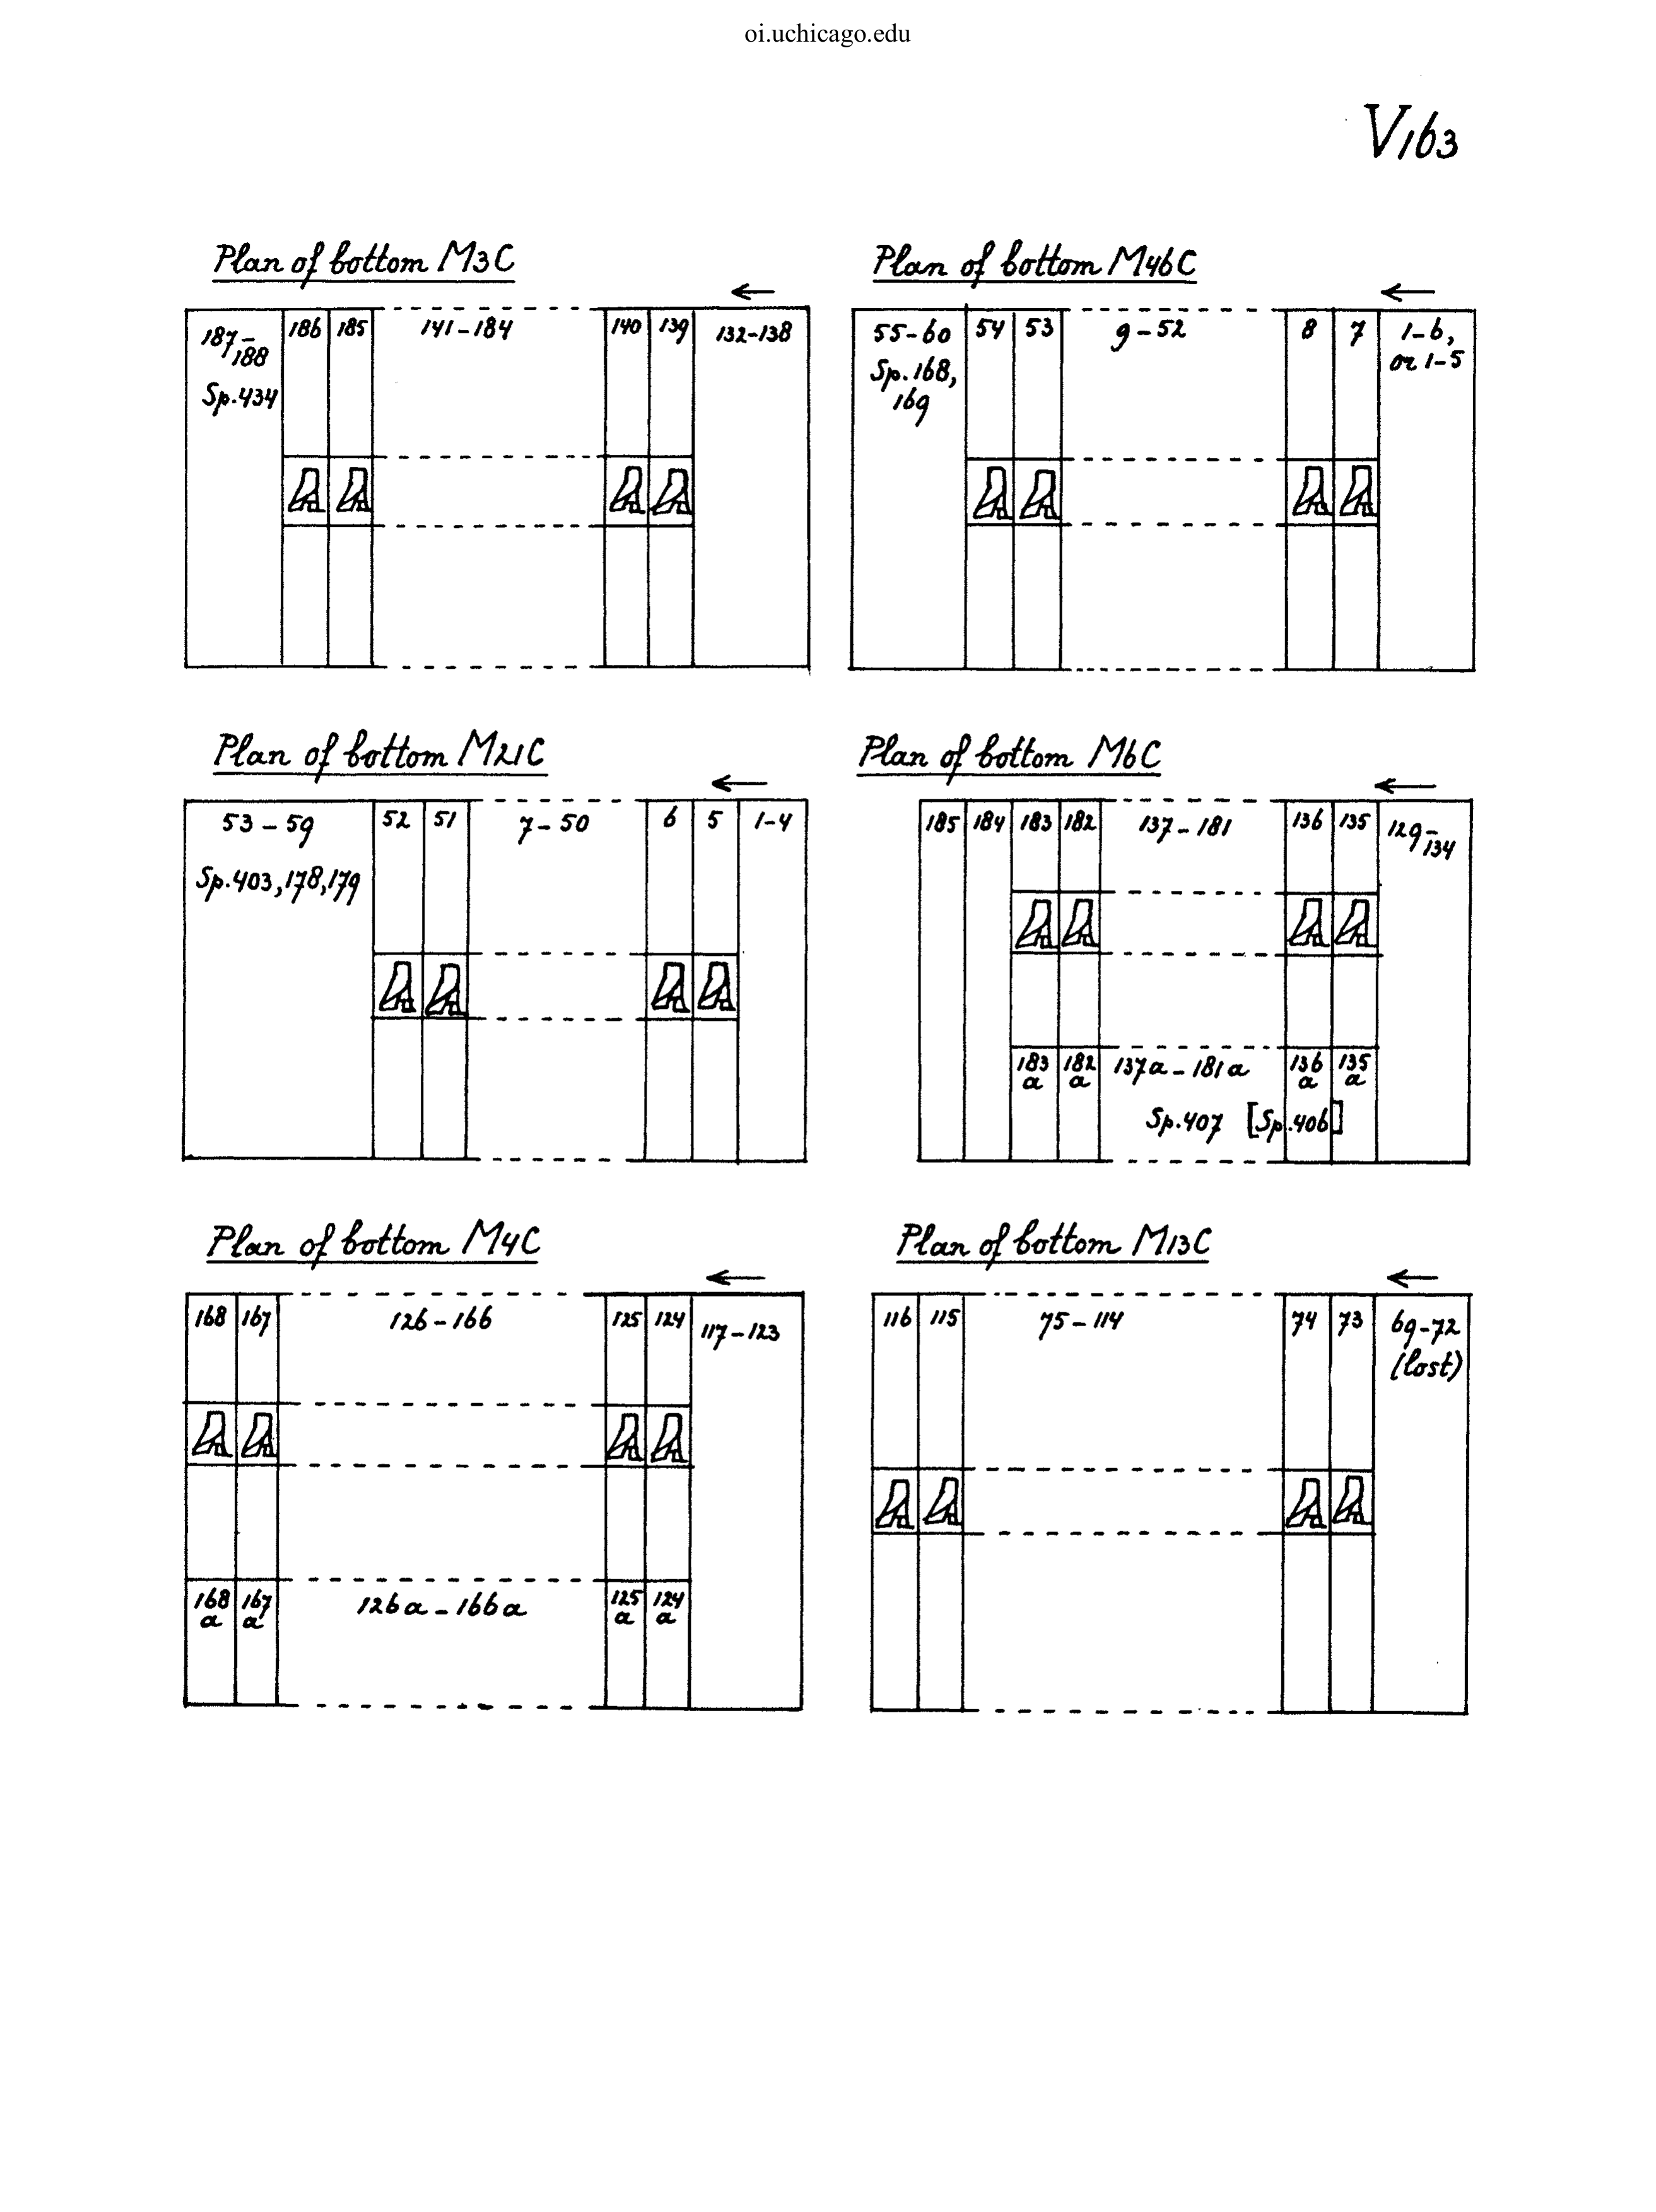 oi.uchicago.edu
V163
Plan of bottom M3C
187-
188
Sp.434
186
185
141-184
140
139
132-138
Plan of bottom M46C
55-60
Sp.168,
169
54
53
9-52
8
7
1-6,
or 1-5
Plan of bottom M21C
53-59
Sp.403,178,179
52
51
7-50
6
5
1-4
Plan of bottom M6C
185
184
183
182
137-181
136
135
129-
134
183
a
182
a
137a-181a
136
a
135
a
Sp.407 [Sp.406]
Plan of bottom M4C
168
167
126-166
125
124
117-123
168
a
167
a
126a-166a
125
a
124
a
Plan of bottom M13C
116
115
75-114
74
73
69-72
(lost)